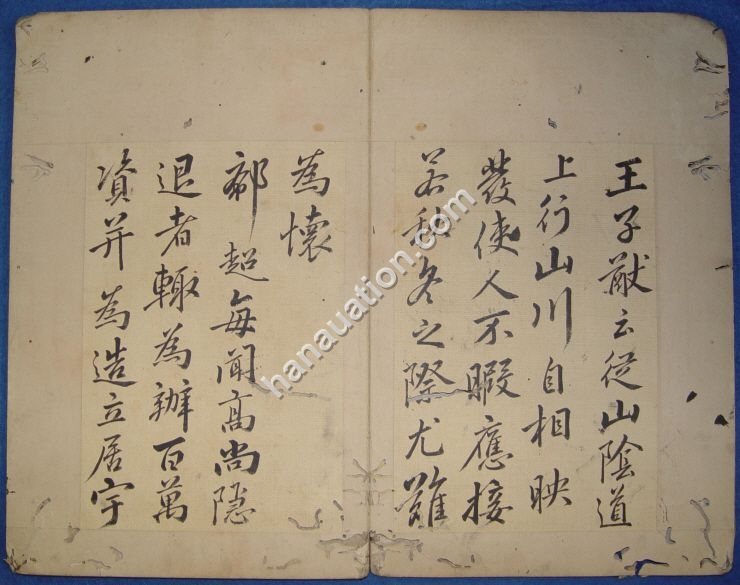 王子猷云從山陰道
上行山川自相映
發使人不暇應接
若秋冬之際尤難
為懷
郗超每聞高尚隱
退者輙為辦百萬
資并為造立居宇
hanauation.com